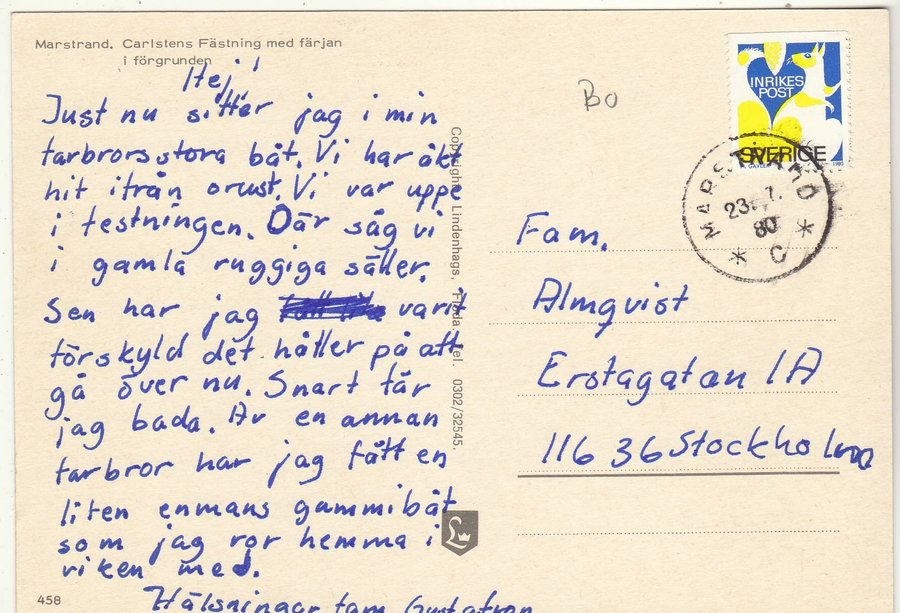 Marstrand. Carlstens Fästning med färjan
i förgrunden
Hej!
Just nu sitter jag i min
farbrors stora båt. Vi har åkt
hit ifrån orust. Vi var uppe
i festningen. Där såg vi
i gamla ruggiga säller.
Sen har jag varit
förskyld det håller på att
gå över nu. Snart får
jag bada. Av en annan
farbror har jag fått en
liten enmans gammibåt
som jag ror hemma i
viken med.
Hälsningar fam Gustafson
458
Copyright: Lindenhags, Tel. 0302/32545.
Bo
INRIKES
POST
SVERIGE
1980
MARSTRAND
23. 7.
80
* C *
Fam.
Almqvist
Erstagatan 1A
116 36 Stockholm